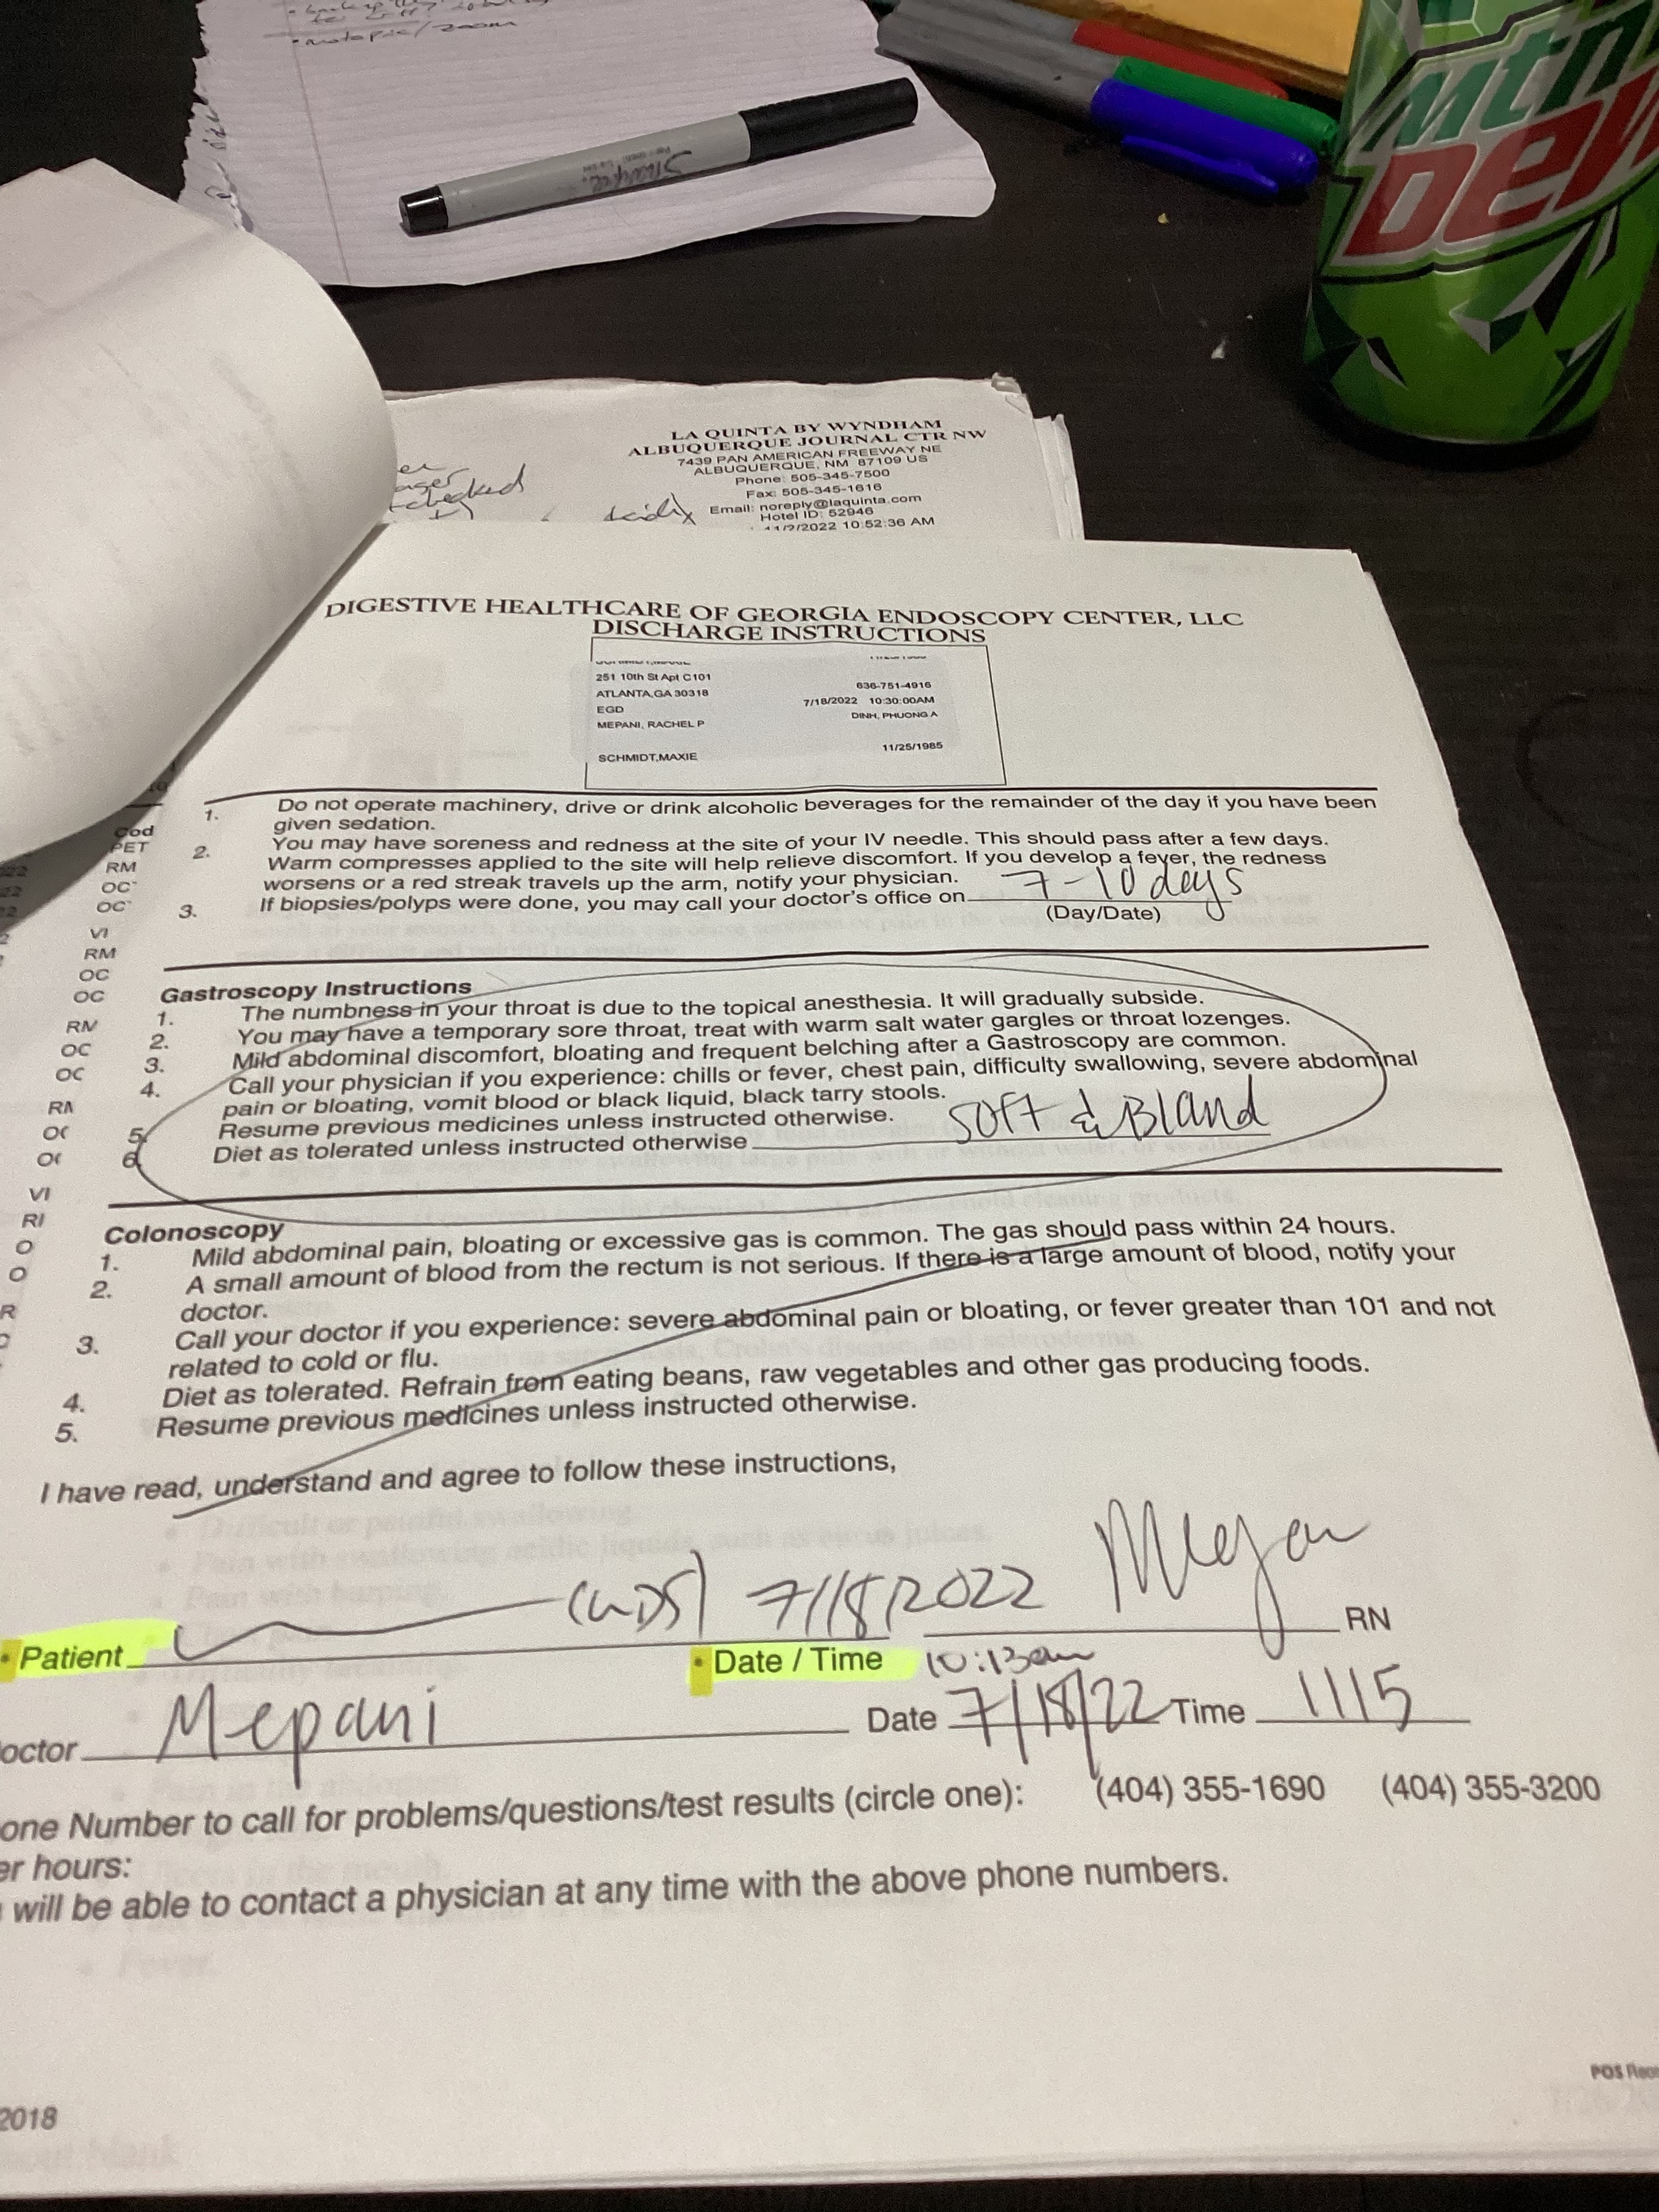 • motopic/zoom
Sharpie.
mtn
DEW
LA QUINTA BY WYNDHAM
ALBUQUERQUE JOURNAL CTR NW
7439 PAN AMERICAN FREEWAY NE
ALBUQUERQUE, NM 87109 US
Phone: 505-345-7500
Fax: 505-345-1616
Email: noreply@laquinta.com
Hotel ID: 52946
11/2/2022 10:52:36 AM
DIGESTIVE HEALTHCARE OF GEORGIA ENDOSCOPY CENTER, LLC
DISCHARGE INSTRUCTIONS
251 10th St Apt C101
636-751-4916
ATLANTA,GA 30318
7/18/2022 10:30:00AM
EGD
DINH, PHUONG A
MEPANI, RACHEL P
11/25/1985
SCHMIDT,MAXIE
1. Do not operate machinery, drive or drink alcoholic beverages for the remainder of the day if you have been
given sedation.
2. You may have soreness and redness at the site of your IV needle. This should pass after a few days.
Warm compresses applied to the site will help relieve discomfort. If you develop a fever, the redness
worsens or a red streak travels up the arm, notify your physician.
3. If biopsies/polyps were done, you may call your doctor's office on 7-10 days
(Day/Date)
Gastroscopy Instructions
1. The numbness in your throat is due to the topical anesthesia. It will gradually subside.
2. You may have a temporary sore throat, treat with warm salt water gargles or throat lozenges.
3. Mild abdominal discomfort, bloating and frequent belching after a Gastroscopy are common.
4. Call your physician if you experience: chills or fever, chest pain, difficulty swallowing, severe abdominal
pain or bloating, vomit blood or black liquid, black tarry stools.
5. Resume previous medicines unless instructed otherwise.
6. Diet as tolerated unless instructed otherwise Soft & Bland
Colonoscopy
1. Mild abdominal pain, bloating or excessive gas is common. The gas should pass within 24 hours.
2. A small amount of blood from the rectum is not serious. If there is a large amount of blood, notify your
doctor.
3. Call your doctor if you experience: severe abdominal pain or bloating, or fever greater than 101 and not
related to cold or flu.
4. Diet as tolerated. Refrain from eating beans, raw vegetables and other gas producing foods.
5. Resume previous medicines unless instructed otherwise.
I have read, understand and agree to follow these instructions,
7/18/2022 Megan RN
• Patient • Date / Time 10:13am
octor Mepani Date 7/18/22 Time 1115
one Number to call for problems/questions/test results (circle one): (404) 355-1690 (404) 355-3200
er hours:
will be able to contact a physician at any time with the above phone numbers.
2018
Cod
PET
RM
OC
OC
VI
RM
OC
OC
RM
OC
OC
VI